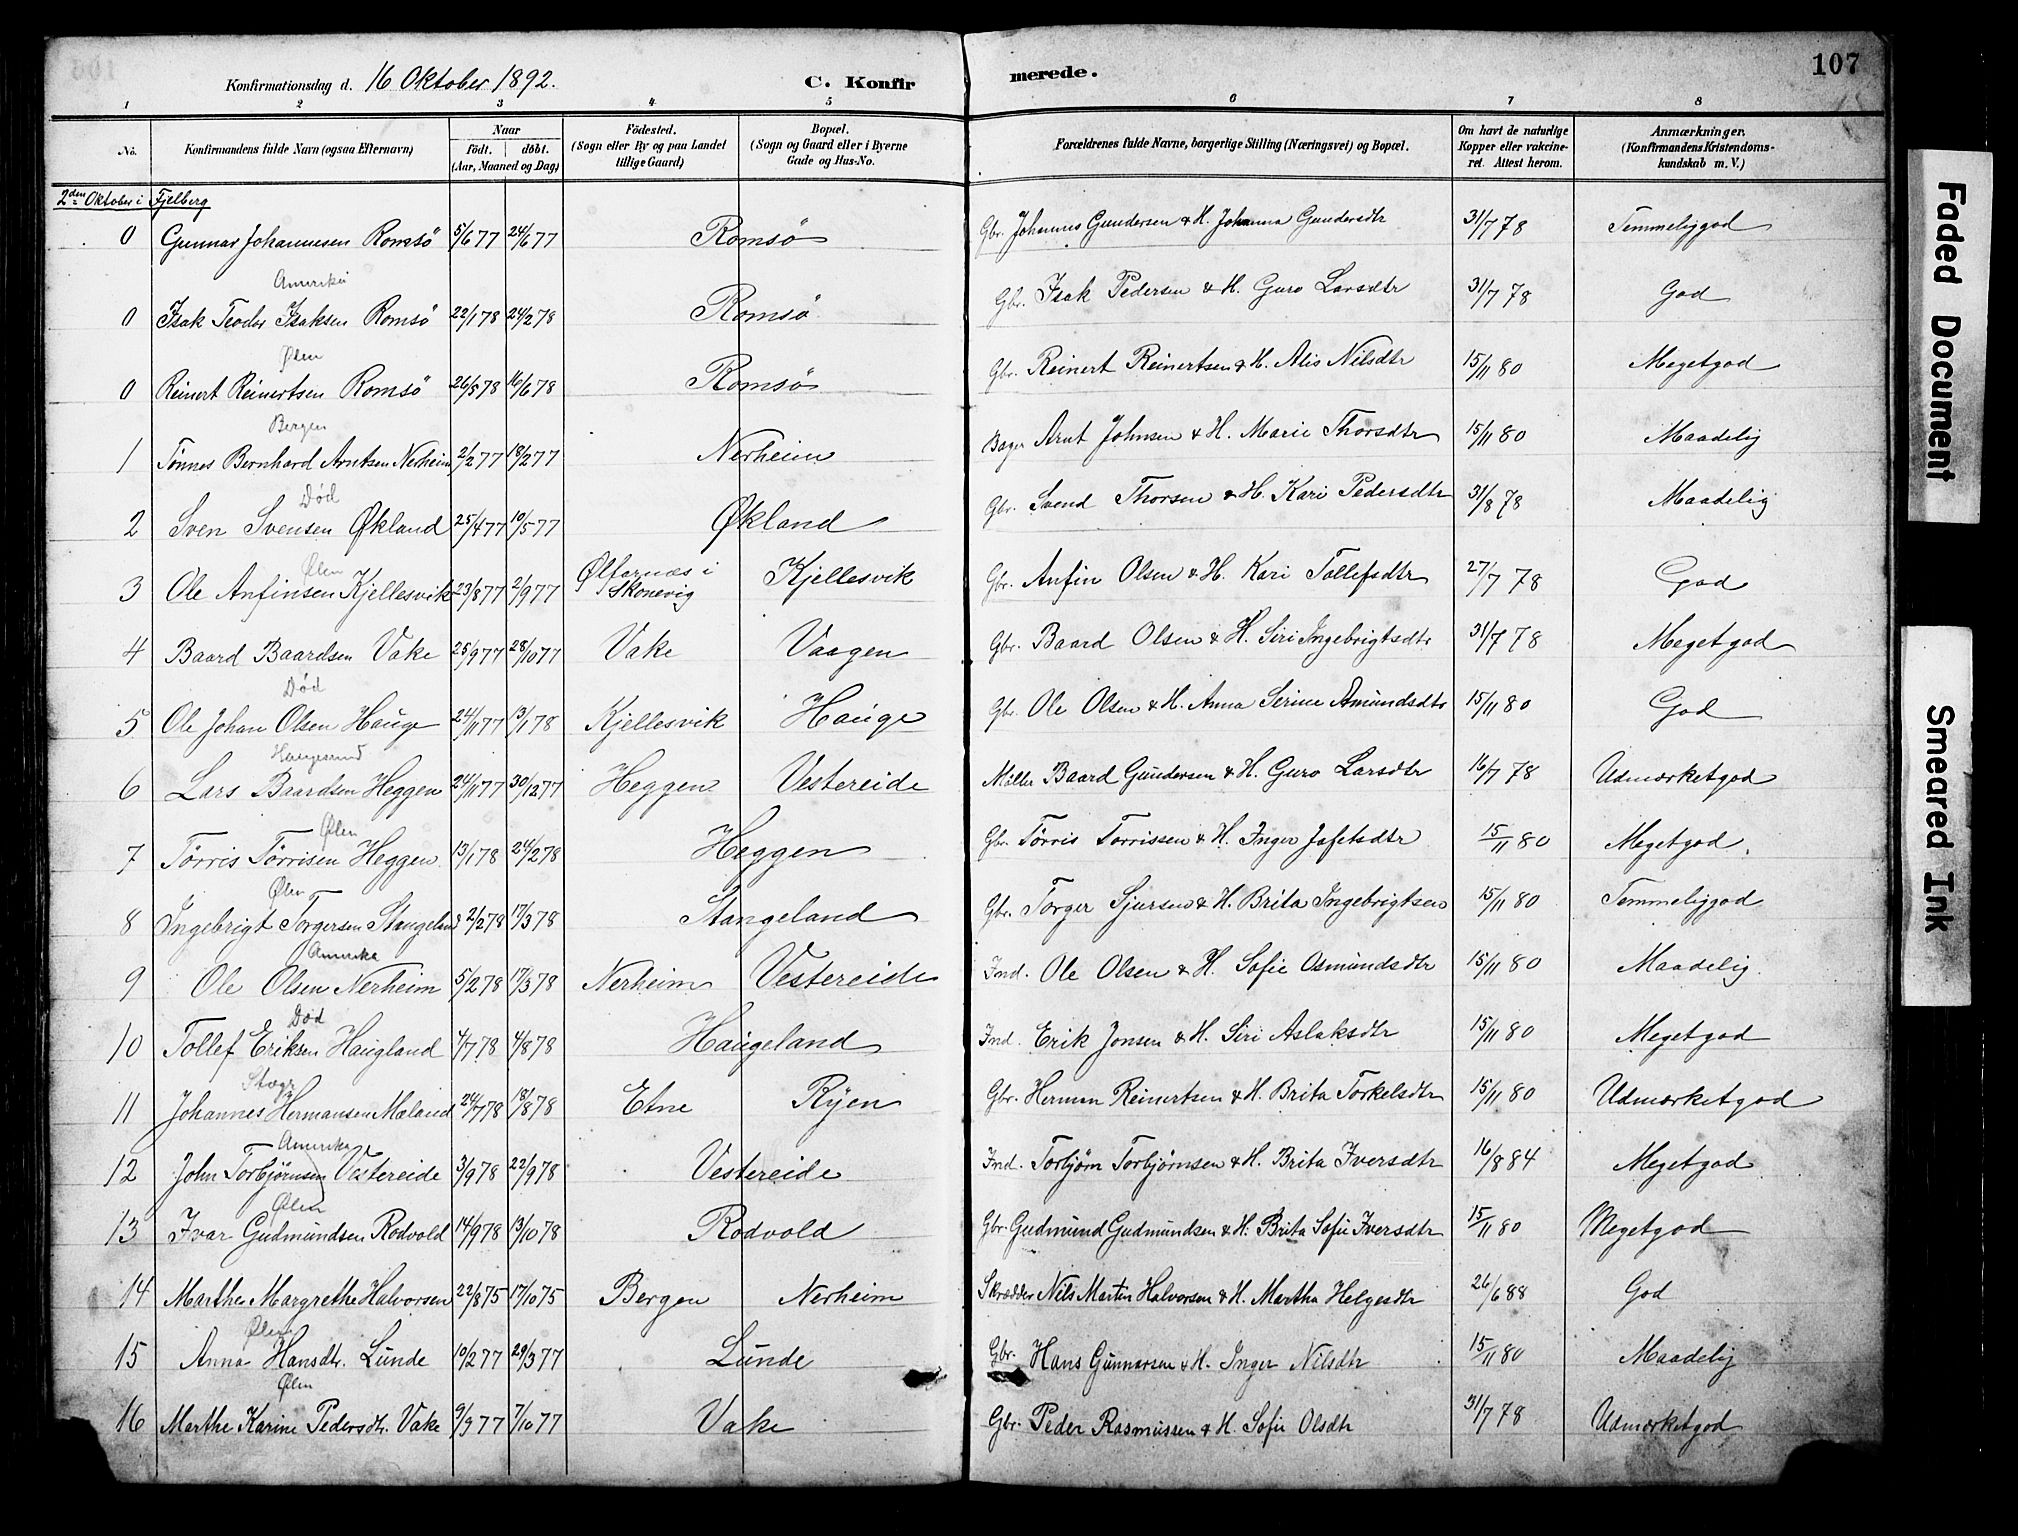 107
Konfirmationsdag d. 16 Oktober 1892. C. Konfirmerede.
1 2 3 4 5 6 7 8
No. Konfirmandens fulde Navn (ogsaa Efternavn) Naar født. døbt. (Aar, Maaned og Dag) Fødested. (Sogn eller By og paa Landet tillige Gaard) Bopæl. (Sogn og Gaard eller i Byerne Gade og Hus-No. Forældrenes fulde Navne, borgerlige Stilling (Næringsvei) og Bopæl. Om havt de naturlige Kopper eller vakcineret. Attest herom. Anmærkninger. (Konfirmandens Kristendomskundskab m. V.)
2den Oktober i Fjelberg
0 Gunnar Johannesen Romsö 5/6 77 24/6 77 Romsö Gbr. Johannes Gundersen & H. Johanna Gundersdtr 31/7 78 Temmeliggod
Amerika
0 Isak Teodor Isaksen Romsö 22/1 78 24/2 78 Romsö Gbr. Isak Pedersen & H. Guro Larsdtr 31/7 78 God
Ølen
0 Reinert Reinertsen Romsö 26/5 78 16/6 78 Romsö Gbr. Reinert Reinertsen & H. Alis Nilsdtr 15/11 80 Megetgod
Bergen
1 Tönnes Bernhard Arntsen Nerheim 2/2 77 18/2 77 Nerheim Bager Arnt Johnsen & H. Marie Thorsdtr 15/11 80 Maadelig
Död
2 Sven Svensen Økland 25/4 77 10/5 77 Økland Gbr. Svend Thorsen & H. Kari Pedersdtr 31/8 78 Maadelig
Ølen
3 Ole Anfinsen Kjellesvik 23/8 77 2/9 77 Ølfarnæs i Skonevig Kjellesvik Gbr. Anfin Olsen & H. Kari Tollefsdtr 27/7 78 God
4 Baard Baardsen Vake 25/9 77 28/10 77 Vake Vaagen Gbr. Baard Olsen & H. Siri Ingebrigtsdtr 31/7 78 Megetgod
Död
5 Ole Johan Olsen Hauge 24/11 77 13/1 78 Kjellesvik Hauge Gbr. Ole Olsen & H. Anna Serine Amundsdtr 15/11 80 God
Haugesund
6 Lars Baardsen Heggen 24/11 77 30/12 77 Heggen Vestereide Möller Baard Gundersen & H. Guro Larsdtr 16/7 78 Udmærketgod
Ølen
7 Törris Törrisen Heggen 13/1 78 24/2 78 Heggen Gbr. Törris Torrissen & H. Inger Jafetsdtr 15/11 80 Megetgod.
Ølen
8 Ingebrigt Torgersen Stangeland 2/2 78 17/3 78 Stangeland Gbr. Torger Sjursen & H. Brita Ingebrigtsen 15/11 80 Temmeliggod
Amerika
9 Ole Olsen Nerheim 5/2 78 17/3 78 Nerheim Vestereide Ind. Ole Olsen & H. Sofie Osmundsdtr 15/11 80 Maadelig.
Död
10 Tollef Eriksen Haugland 4/7 78 4/8 78 Haugeland Ind. Erik Jonsen & H. Siri Aslaksdtr 15/11 80 Megetgod
11 Johannes Hermansen Mæland 24/7 78 18/8 78 Etne Ryen Gbr. Herman Reinertsen & H. Brita Torkelsdtr 15/11 80 Udmærketgod
Amerika
12 John Torbjørnsen Vestereide 3/9 78 22/9 78 Vestereide Ind. Torbjørn Torbjørnsen & H. Brita Iversdtr 16/8 84 Megetgod
Ølen
13 Ivar Gudmundsen Rodvold 14/9 78 13/10 78 Rodvold Gbr. Gudmund Gudmundsen & H. Brita Sofie Iversdtr 15/11 80 Megetgod
14 Marthe Margrethe Halvorsen 22/8 75 17/10 75 Bergen Nerheim Skrædder Nils Martin Halvorsen & H. Martha Helgesdtr 26/6 88 God
Ølen
15 Anna Hansdtr. Lunde 10/2 77 29/3 77 Lunde Gbr. Hans Gunnarsen & H. Inger Nilsdtr 15/11 80 Maadelig
Ølen
16 Marthe Karine Pedersdtr. Vake 9/9 77 7/10 77 Vake Gbr. Peder Rasmussen & H. Sofie Olsdtr 31/7 78 Udmærketgod
Faded Document
Smeared Ink